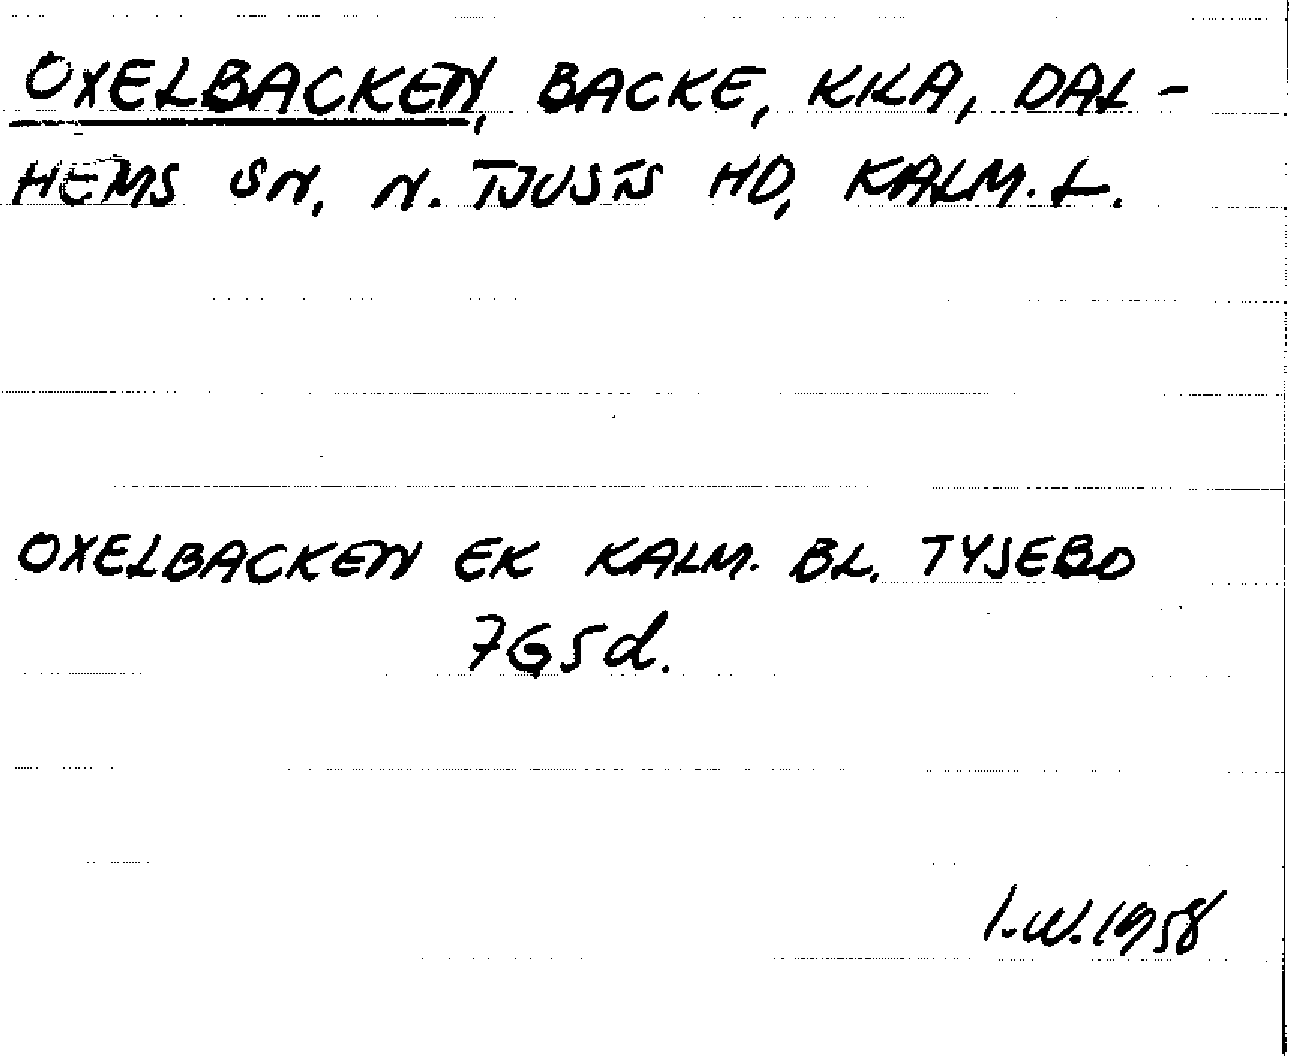 OXELBACKEN, BACKE, KILA, DAL-
HEMS SN, N. TJUSTS HD, KALM. L.
OXELBACKEN EK KALM. BL. TYJEBO
7G5d.
I.W. 1958